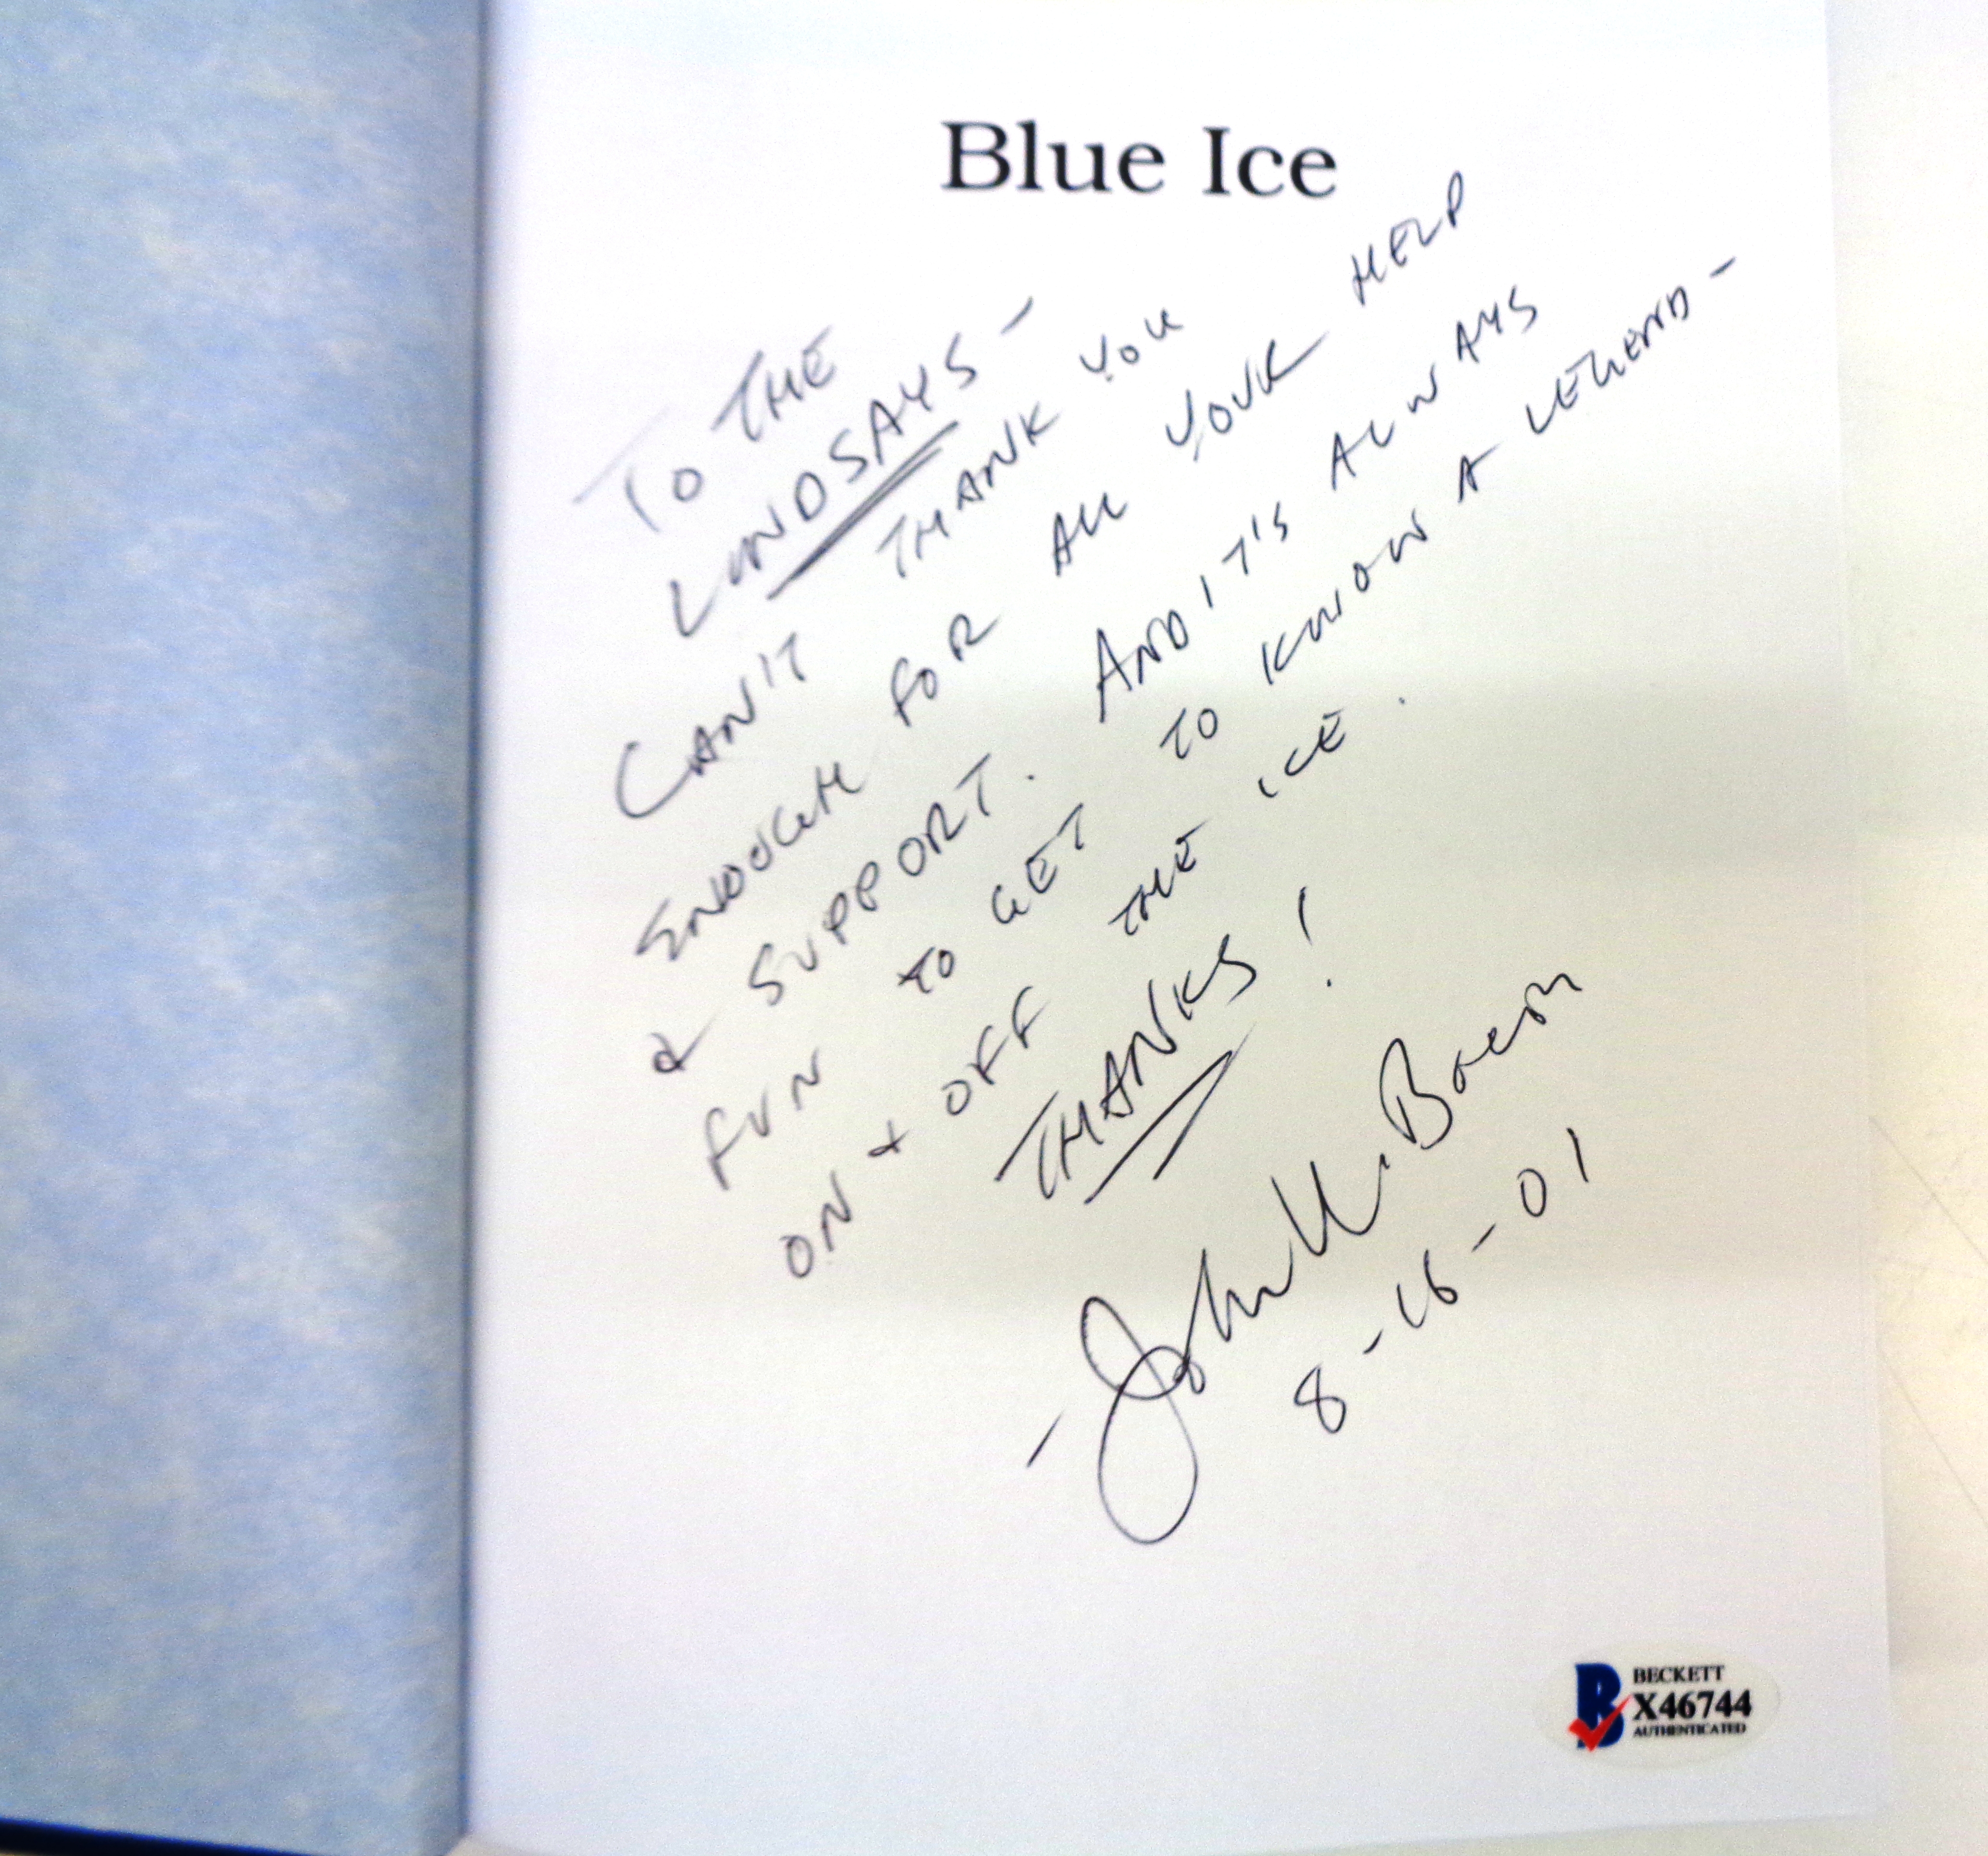 Blue Ice
TO THE
LINDSAYS -
CAN'T THANK YOU
ENOUGH FOR ALL YOUR HELP
& SUPPORT. AND IT'S ALWAYS
FUN TO GET TO KNOW A LEGEND -
ON & OFF THE ICE.
THANKS!
- John U. Bacon
8-16-01
BECKETT
X46744
AUTHENTICATED